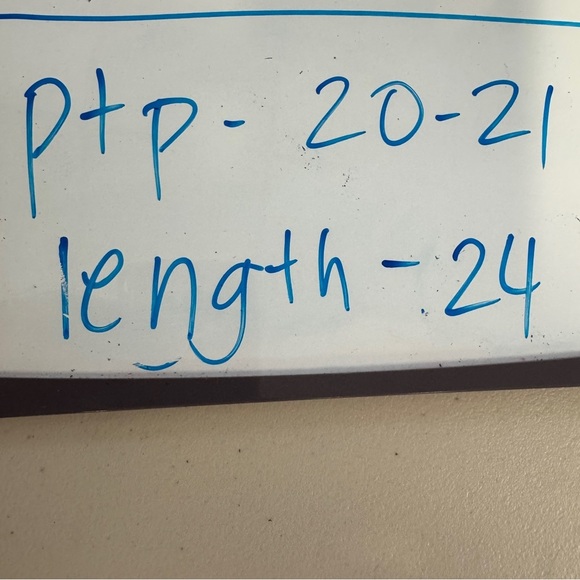 ptp - 20-21
length - 24